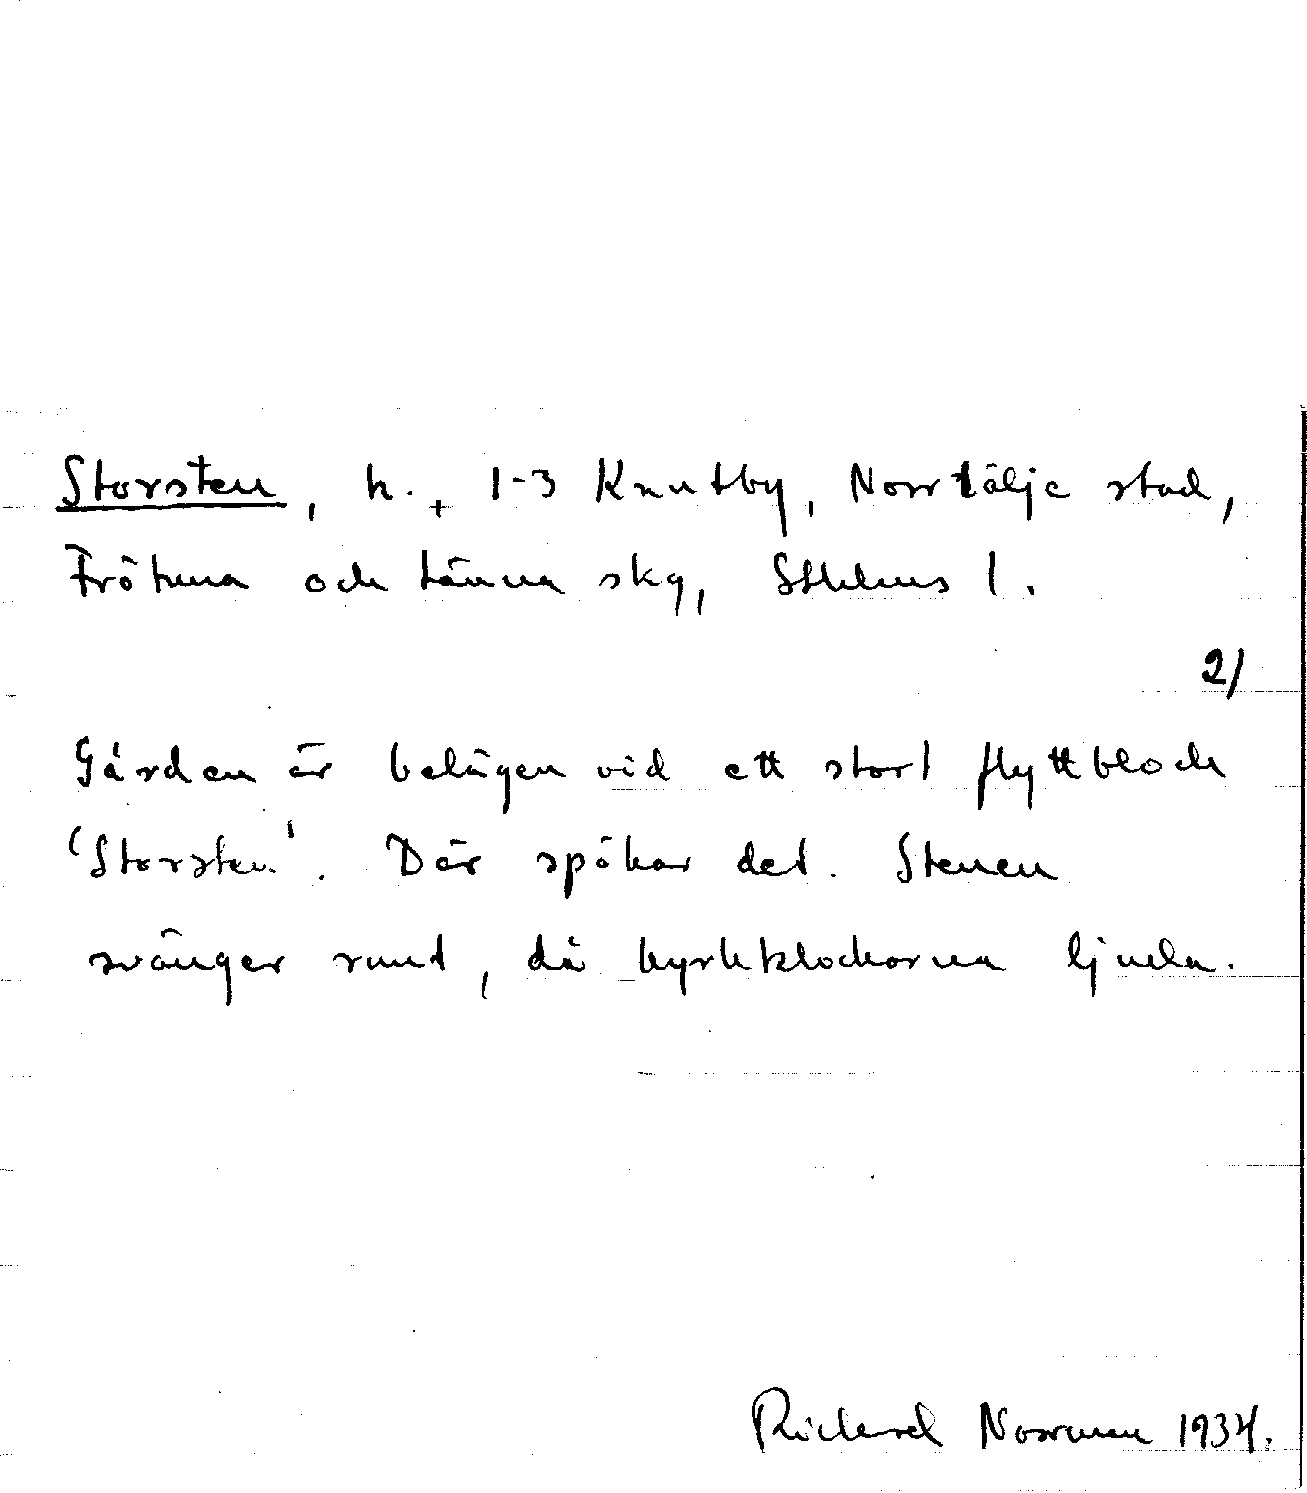 Storsten, h. + 1-3 Knutby, Norrtälje stad,
Frötuna och Länna skg, Sthlms l.
2/
Gården är belägen vid ett stort flyttblock
'Storsten'. Där spökar det. Stenen
svänger runt, då kyrkklockorna ljuda.
Rickard Norrman 1934.